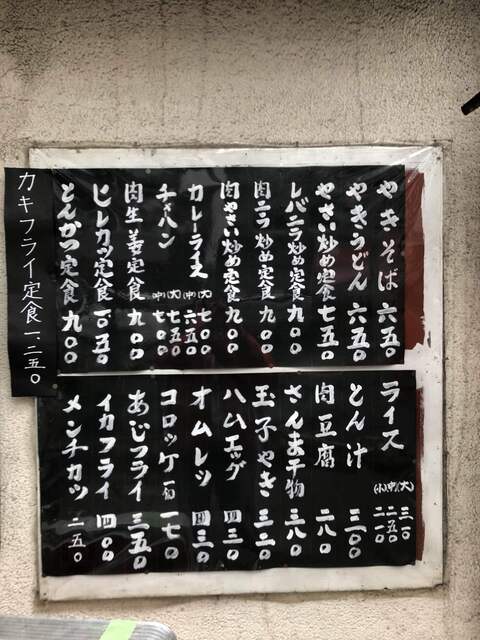 やきそば 六五〇
やきうどん 六五〇
やさい炒め定食 七五〇
レバニラ炒め定食 九〇〇
肉ニラ炒め定食 九〇〇
肉やさい炒め定食 九〇〇
カレーライス (大) 七〇〇 (中) 六五〇
チャーハン (大) 七五〇 (中) 七〇〇
肉生姜定食 九〇〇
ヒレカツ定食 一〇五〇
とんかつ定食 九〇〇
カキフライ定食 一、二五〇
ライス (大) 三一〇 (中) 二五〇 (小) 二一〇
とん汁 三〇〇
肉豆腐 二八〇
さんま干物 三八〇
玉子やき 三二〇
ハムエッグ 四三〇
オムレツ 四三〇
コロッケ一ヶ 一七〇
あじフライ 三五〇
イカフライ 四〇〇
メンチカツ 二五〇